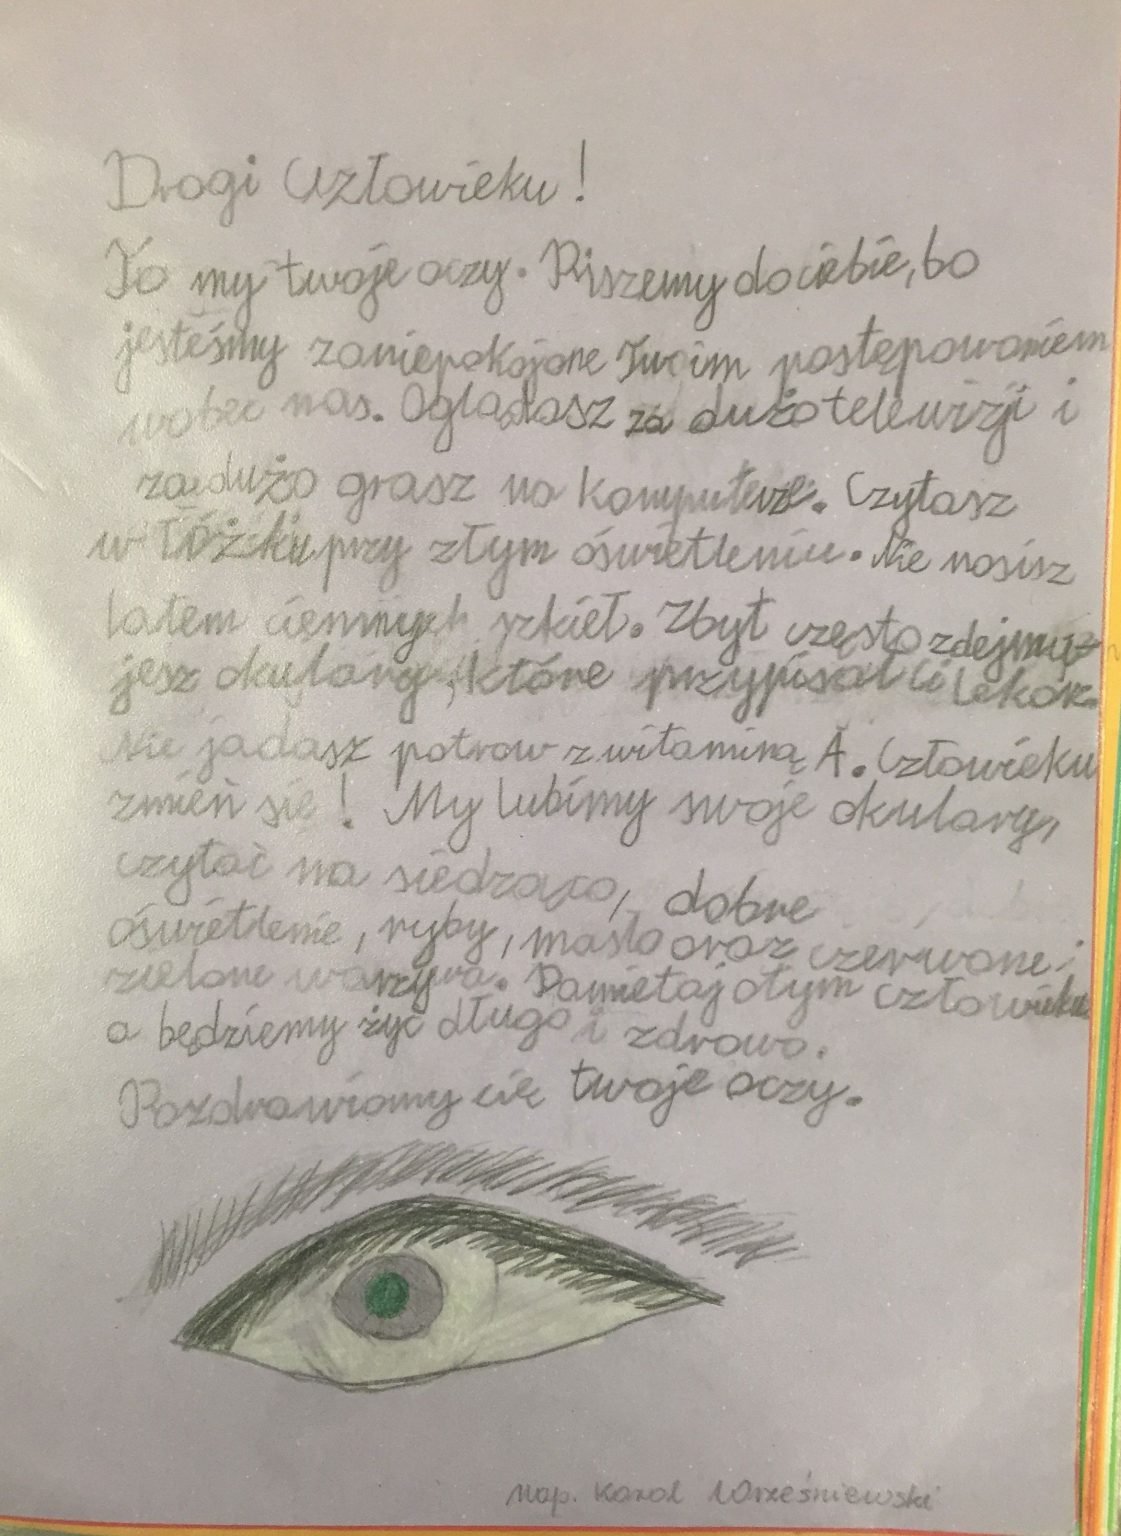 Drogi Człowieku!
To my twoje oczy. Piszemy do ciebie, bo
jesteśmy zaniepokojone Twoim postępowaniem
wobec nas. Oglądasz za dużo telewizji i
za dużo grasz na komputerze. Czytasz
w łóżku przy złym oświetleniu. Nie nosisz
latem ciemnych szkieł. Zbyt często zdejmu-
jesz okulary, które przypisał Ci lekarz.
Nie jadasz potraw z witaminą A. Człowieku
zmień się! My lubimy swoje okulary,
czytać na siedząco, dobre
oświetlenie, ryby, masło oraz czerwone i
zielone warzywa. Pamiętaj o tym człowieku
a będziemy żyć długo i zdrowo.
Pozdrawiamy cię twoje oczy.
Nap. Karol Wrześniewski